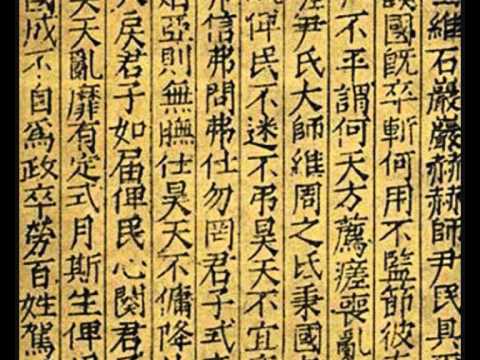 維石巖巖赫赫師尹民具
國既卒斬何用不監節彼
不平謂何天方薦瘥喪亂
尹氏大師維周之氏秉國
俾民不迷不弔昊天不宜
信弗問弗仕勿罔君子式
亞則無膴仕昊天不傭降
戾君子如届俾民心闋君
天亂靡有定式月斯生俾
成不自為政卒勞百姓駕